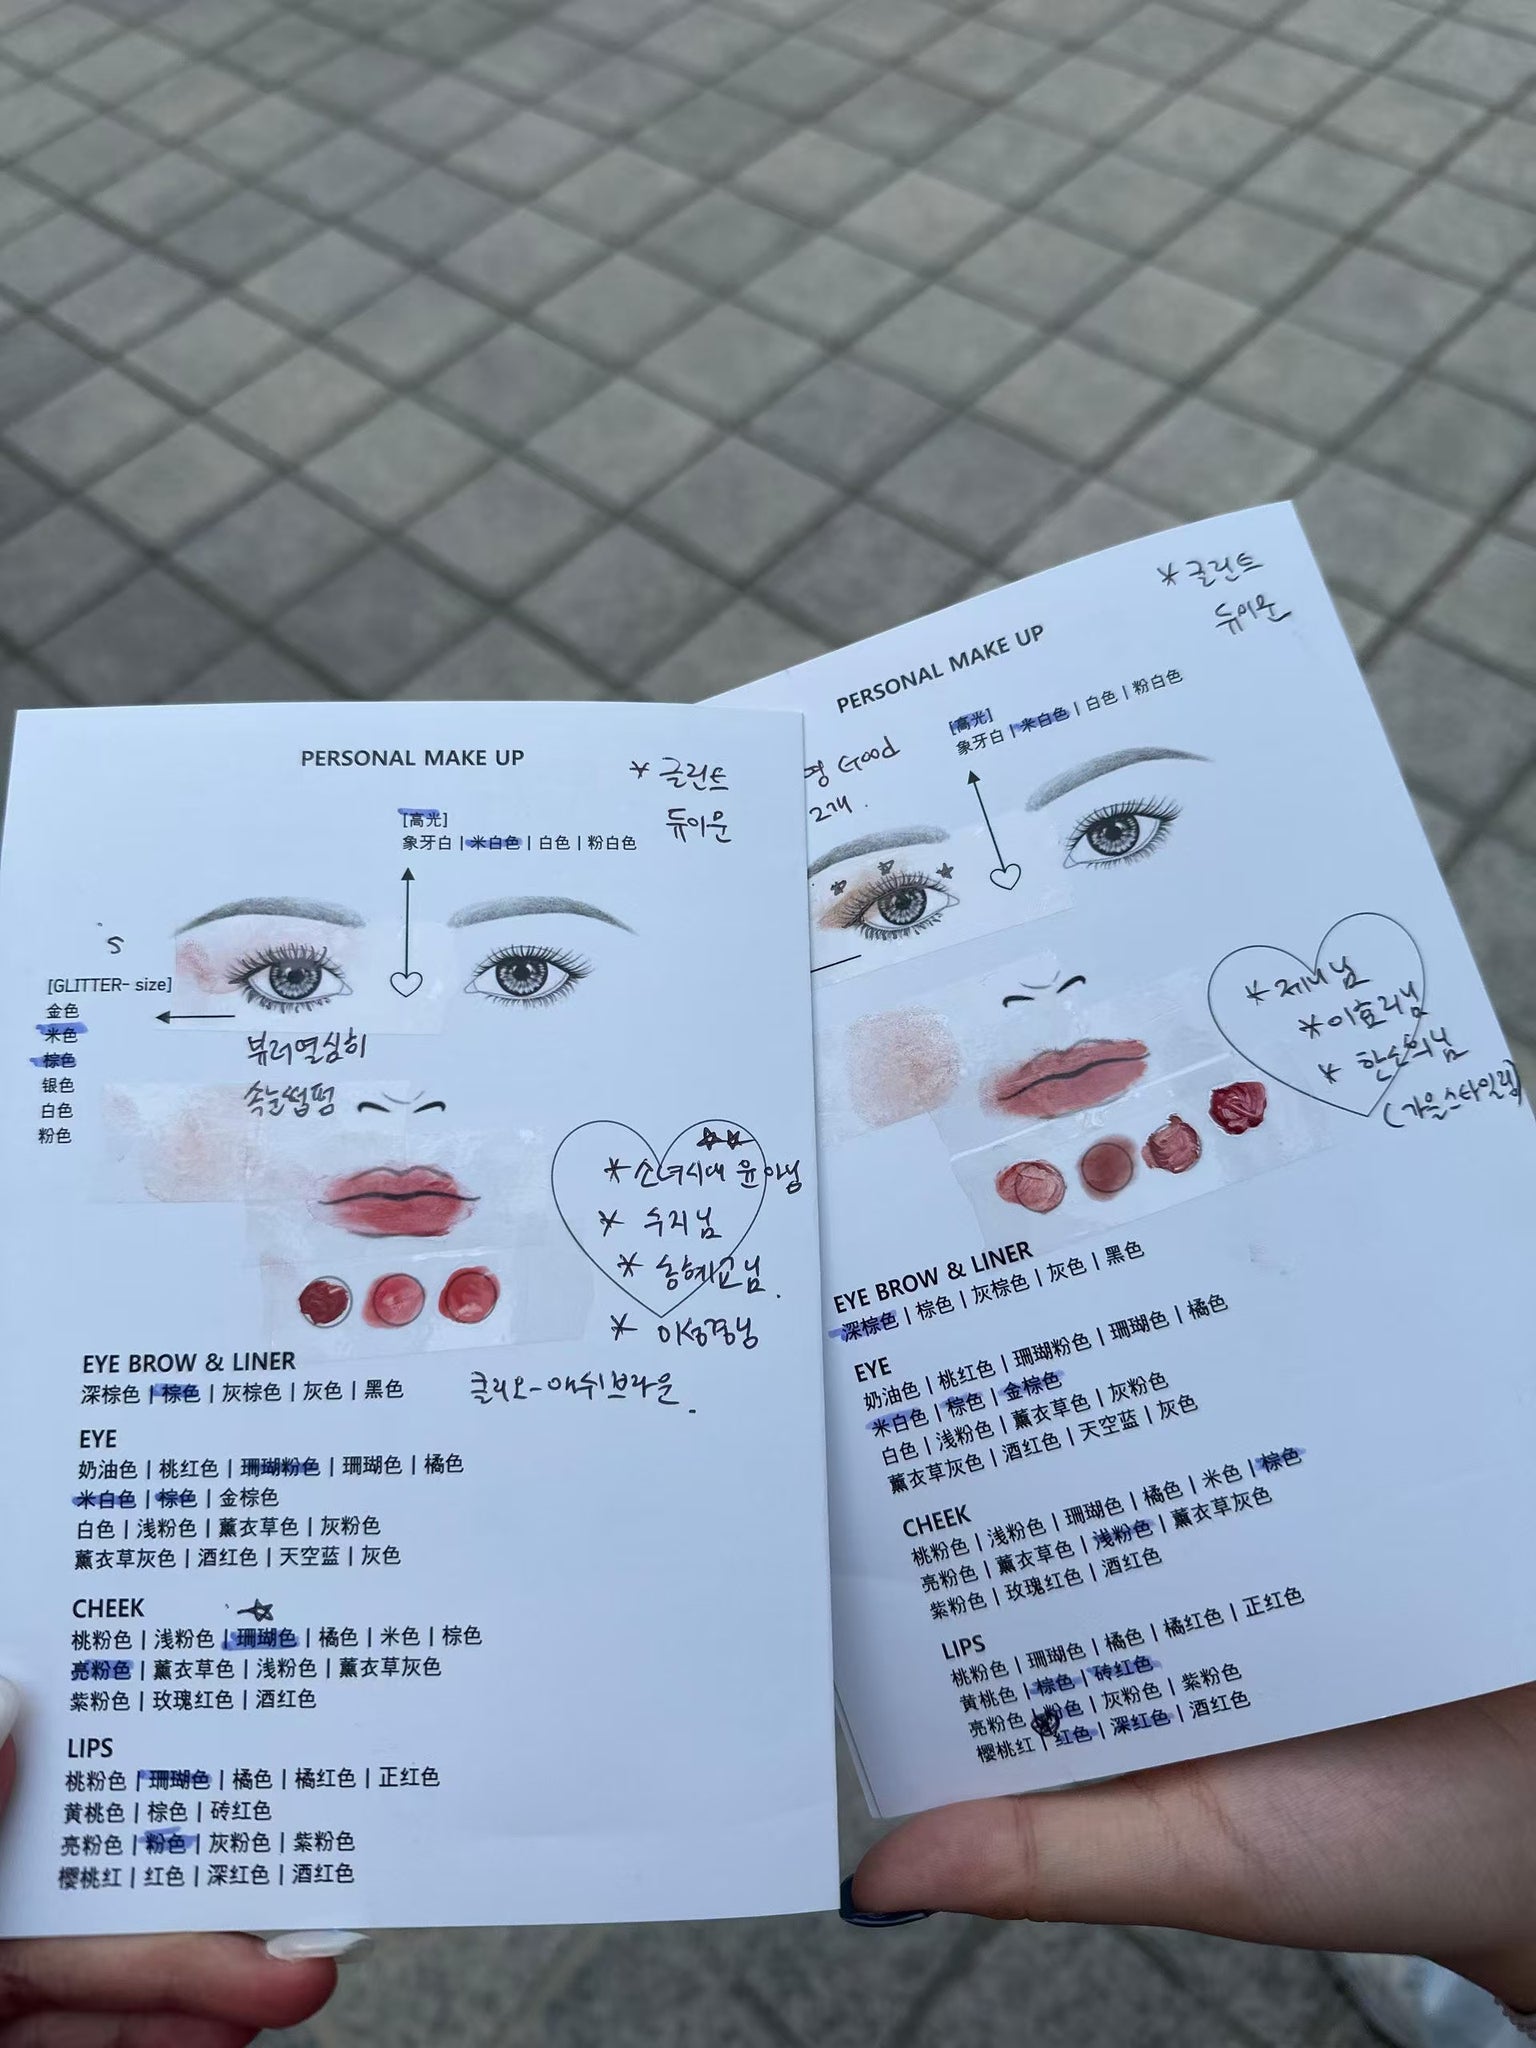 PERSONAL MAKE UP
* 글린트
듀이문
[高光]
象牙白 | 米白色 | 白色 | 粉白色
S
[GLITTER- size]
金色
米色
棕色
银色
白色
粉色
뷰러열심히
속눈썹펌
* 소녀시대 윤아님
* 수지님
* 송혜교님.
* 이성경님
EYE BROW & LINER
深棕色 | 棕色 | 灰棕色 | 灰色 | 黑色
클리오-애쉬브라운.
EYE
奶油色 | 桃红色 | 珊瑚粉色 | 珊瑚色 | 橘色
米白色 | 棕色 | 金棕色
白色 | 浅粉色 | 薰衣草色 | 灰粉色
薰衣草灰色 | 酒红色 | 天空蓝 | 灰色
CHEEK
桃粉色 | 浅粉色 | 珊瑚色 | 橘色 | 米色 | 棕色
亮粉色 | 薰衣草色 | 浅粉色 | 薰衣草灰色
紫粉色 | 玫瑰红色 | 酒红色
LIPS
桃粉色 | 珊瑚色 | 橘色 | 橘红色 | 正红色
黄桃色 | 棕色 | 砖红色
亮粉色 | 粉色 | 灰粉色 | 紫粉色
樱桃红 | 红色 | 深红色 | 酒红色
PERSONAL MAKE UP
* 글린트
듀이문
[高光]
象牙白 | 米白色 | 白色 | 粉白色
Good
2개.
* 제니님
* 이효리님
* 한소희님
(가을스타일링)
EYE BROW & LINER
深棕色 | 棕色 | 灰棕色 | 灰色 | 黑色
EYE
奶油色 | 桃红色 | 珊瑚粉色 | 珊瑚色 | 橘色
米白色 | 棕色 | 金棕色
白色 | 浅粉色 | 薰衣草色 | 灰粉色
薰衣草灰色 | 酒红色 | 天空蓝 | 灰色
CHEEK
桃粉色 | 浅粉色 | 珊瑚色 | 橘色 | 米色 | 棕色
亮粉色 | 薰衣草色 | 浅粉色 | 薰衣草灰色
紫粉色 | 玫瑰红色 | 酒红色
LIPS
桃粉色 | 珊瑚色 | 橘色 | 橘红色 | 正红色
黄桃色 | 棕色 | 砖红色
亮粉色 | 粉色 | 灰粉色 | 紫粉色
樱桃红 | 红色 | 深红色 | 酒红色